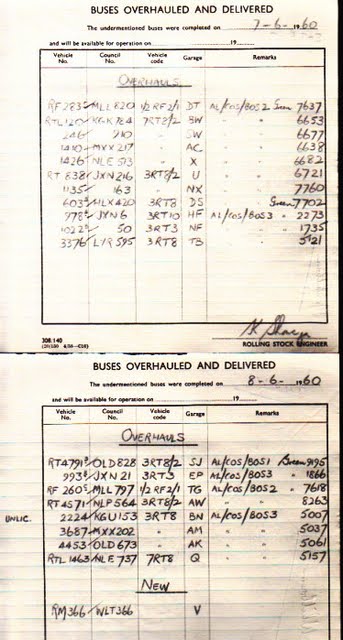 BUSES OVERHAULED AND DELIVERED
The undermentioned buses were completed on 7-6-1960
and will be available for operation on 19
Vehicle No. Council No. Vehicle code Garage Remarks
OVERHAULS
RF 283 MLL820 1/2RF2/1 DT AL/COS/BOS2 Green 7637
RTL120 KGK784 7RT8/2 BW " " 6653
246 910 " SW " " 6677
1410 MXX217 " AC " " 6638
1426 NLE 573 " X " " 6682
RT 838 JXN216 3RT8/2 U " " 6721
1135 163 " NX " " 7760
603 HLX420 3RT8 DS " Green 7702
978 JXN6 3RT10 HF AL/COS/BOS3 " 2273
1022 50 3RT3 NF " " 1735
3376 LYR595 3RT8 TB " " 5121
308/140
ROLLING STOCK ENGINEER
BUSES OVERHAULED AND DELIVERED
The undermentioned buses were completed on 8-6-1960
and will be available for operation on 19
Vehicle No. Council No. Vehicle code Garage Remarks
OVERHAULS
RT4791 OLD828 3RT8/2 SJ AL/COS/BOS1 Green 9195
993 JXN21 3RT3 EP AL/COS/BOS3 " 1866
RF 260 MLL797 1/2RF2/1 TG AL/COS/BOS2 " 7618
RT4571 NLP564 3RT8/2 AW " " 8263
UNLIC. 2224 KGU153 3RT8 BN AL/COS/BOS3 " 5007
3687 MXX202 " AM " " 5037
4453 OLD673 " AK " " 5061
RTL 1463 NLE 737 7RT8 Q " " 5157
NEW
RM366 WLT366 V